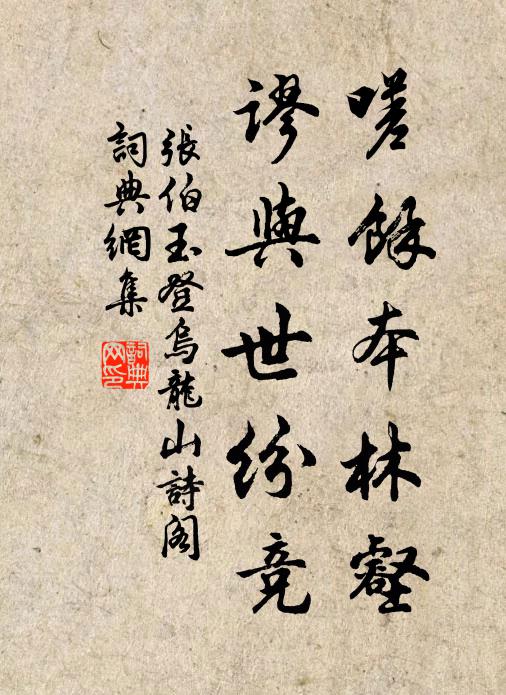 嗟餘本林壑
謬與世紛競
張伯玉登烏龍山詩閣
詞典網集
詞典网印